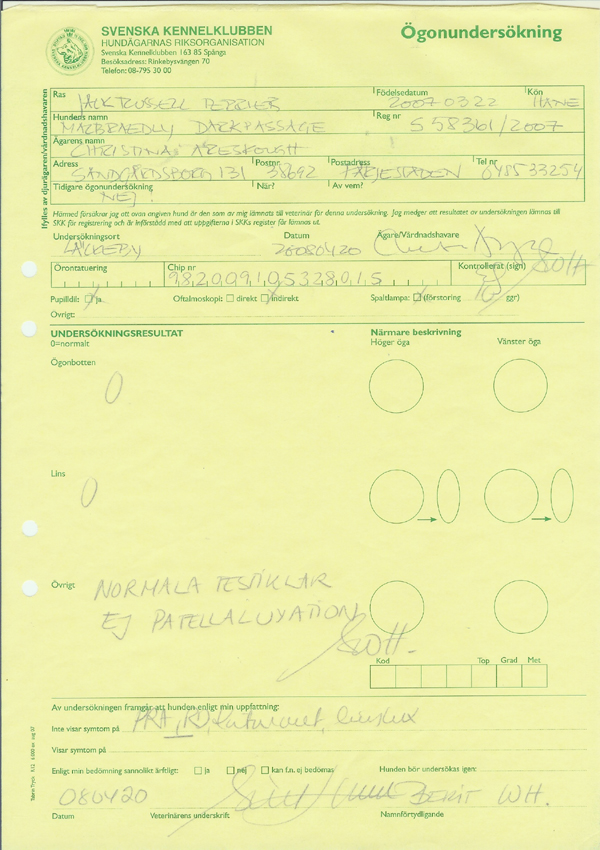 SVENSKA KENNELKLUBBEN
HUNDÄGARNAS RIKSORGANISATION
Svenska Kennelklubben 163 85 Spånga
Besöksadress: Rinkebysvängen 70
Telefon: 08-795 30 00
Ögonundersökning
Ifylles av djurägaren/vårdnadshavaren
Ras Födelsedatum Kön
JACK RUSSELL TERRIER 20070322 HANE
Hundens namn Reg nr
DARKPASSAGE S58361/2007
Ägarens namn
CHRISTINA ARESKOUGH
Adress Postnr Postadress Tel nr
SANDGÅRDSBORG 131 38692 FÄRJESTADEN 0485 33254
Tidigare ögonundersökning När? Av vem?
NEJ
Härmed försäkrar jag att ovan angiven hund är den som av mig lämnats till veterinär för denna undersökning. Jag medger att resultatet av undersökningen lämnas till
SKK för registrering och är införstådd med att uppgifterna i SKKs register får lämnas ut.
Undersökningsort Datum Ägare/Vårdnadshavare
20080420
Örontatuering Chip nr Kontrollerat (sign)
982009105328015
Pupilldil: ja Oftalmoskopi: direkt indirekt Spaltlampa: (förstoring ggr)
Övrigt:
UNDERSÖKNINGSRESULTAT Närmare beskrivning
0=normalt Höger öga Vänster öga
Ögonbotten
0
Lins
0
Övrigt
NORMALA TESTIKLAR
EJ PATELLALUXATION
Kod Top Grad Met
Av undersökningen framgår att hunden enligt min uppfattning:
Inte visar symtom på PRA, RD, Katarakt,
Visar symtom på
Enligt min bedömning sannolikt ärftligt: ja nej kan f.n. ej bedömas Hunden bör undersökas igen:
080420 BERIT WH.
Datum Veterinärens underskrift Namnförtydligande